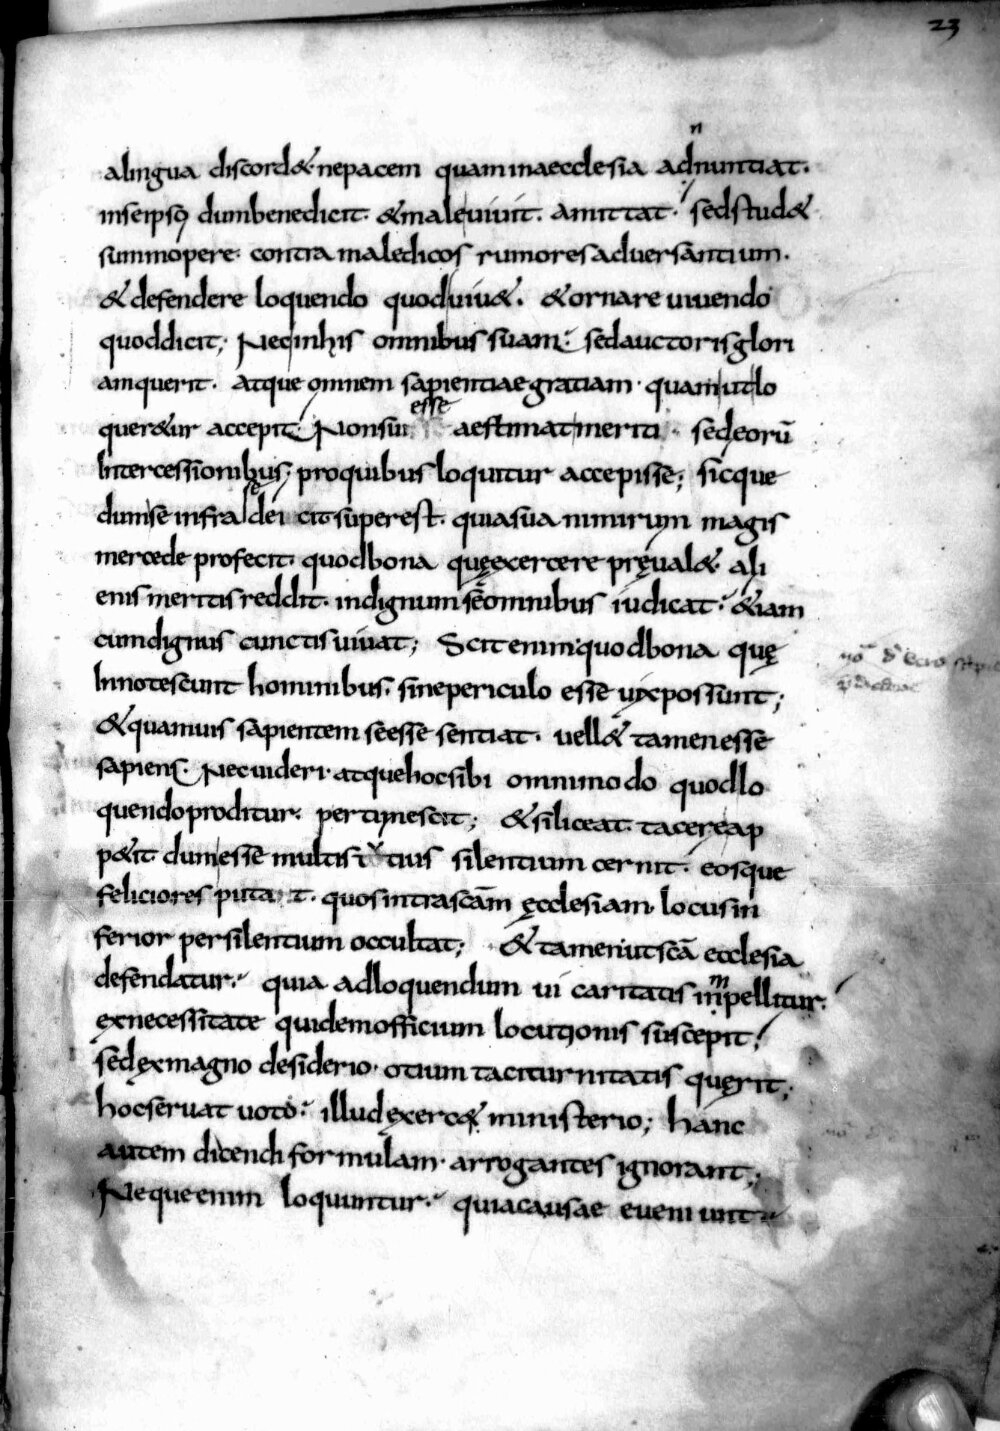 23
a lingua discord&. ne pacem quam in aecclesia adnuntiat.
in se ipsọ dum benedicit. & male vivit. amittat. sed stud&
summopere. contra maledicos rumores adversantium.
& defendere loquendo quod viu&. & ornare vivendo
quod dicit; Nec in his omnibus suam. sed auctoris glori
am querit. atque omnem sapientiae gratiam. quam ut lo
quer&ur accepit. Non sui esse aestimat meriti. sed eorū
Intercessionibus. pro quibus loquitur accepisse; sicque
dum se infra se deicit superest. quia sua nimirum magis
mercede profecit. quod bona quę exercere pręual&. ali
enis meritis reddit. indignum sē omnibus iudicat. &iam
cum dignus cunctis uiuat; Scit enim quod bona quę
Innotescunt hominibus. sine periculo esse uix possunt;
& quamuis sapientem se esse sentiat. uell& tamen esse
sapiens. Nec uideri. atque hoc sibi omnimodo quod lo
quendo proditur. pertimescit; & si liceat. tacere ap
p&it. dum esse multis tutius silentium cernit. eosque
feliciores putat. quos intra scām ęcclesiam. locus in
ferior per silentium occultat; & tamen ut scā ecclesia
defendatur. quia ad loquendum ui caritatis impellitur.
ex necessitate quidem officium locutionis suscepit;
sed ex magno desiderio. otium taciturnitatis quęrit;
hoc seruat uoto. illud exerc& ministerio; hanc
autem dicendi formulam. arrogantes ignorant;
Neque enim loquuntur. quia causae eueniunt